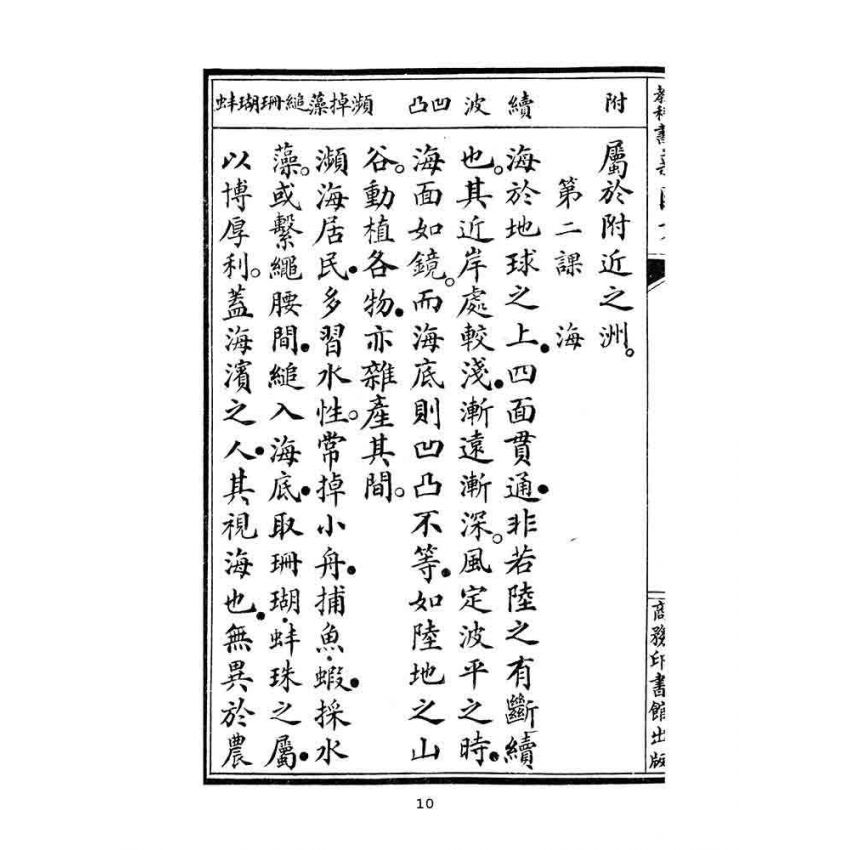 附　續　波　凹凸　瀕掉藻縋珊瑚蚌
屬於附近之洲。
第二課　海
海於地球之上．四面貫通．非若陸之有斷續
也。其近岸處較淺．漸遠漸深。風定波平之時．
海面如鏡。而海底則凹凸不等．如陸地之山
谷。動植各物．亦雜產其間。
瀕海居民．多習水性。常掉小舟．捕魚．蝦．採水
藻。或繫繩腰間．縋入海底．取珊瑚．蚌珠之屬．
以博厚利。蓋海濱之人．其視海也．無異於農
商務印書館出版
10